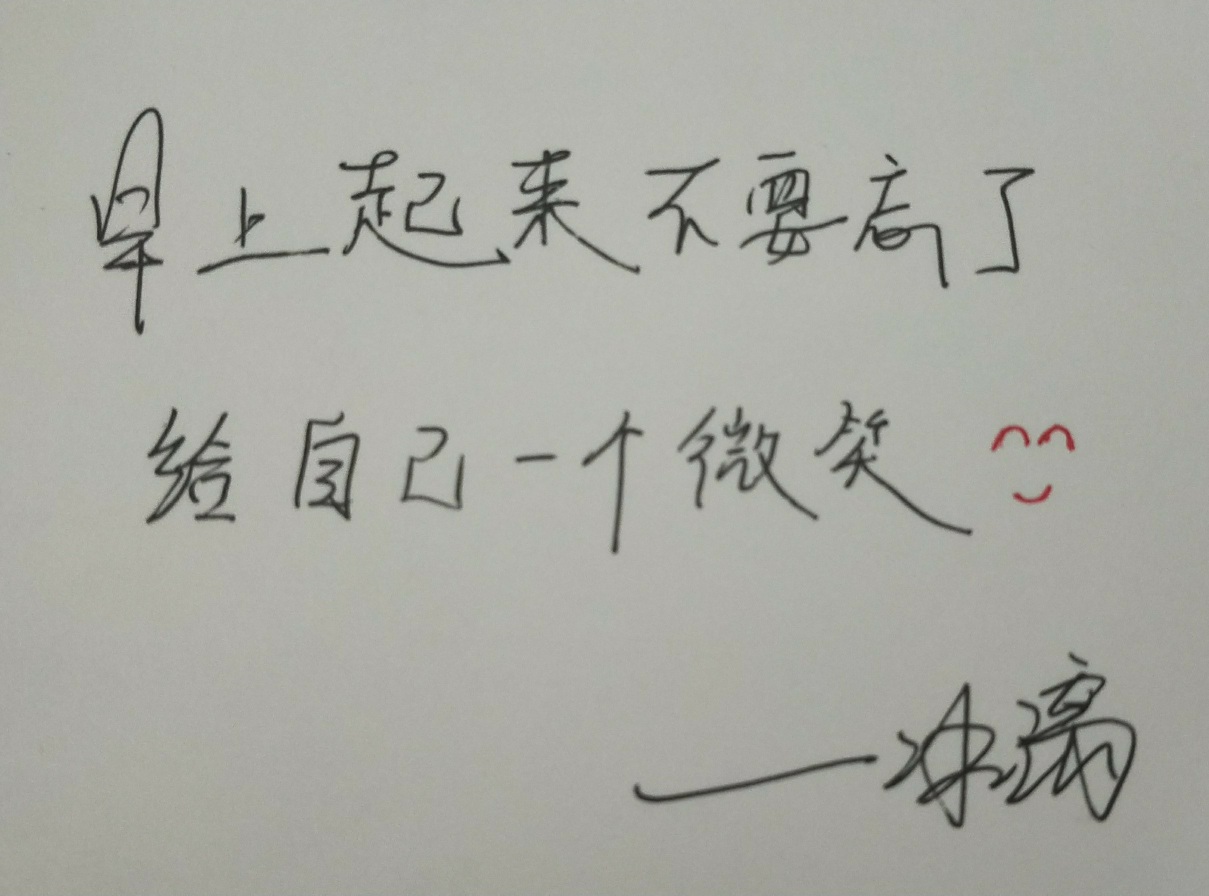 早上起来不要忘了
给自己一个微笑
——冰漓